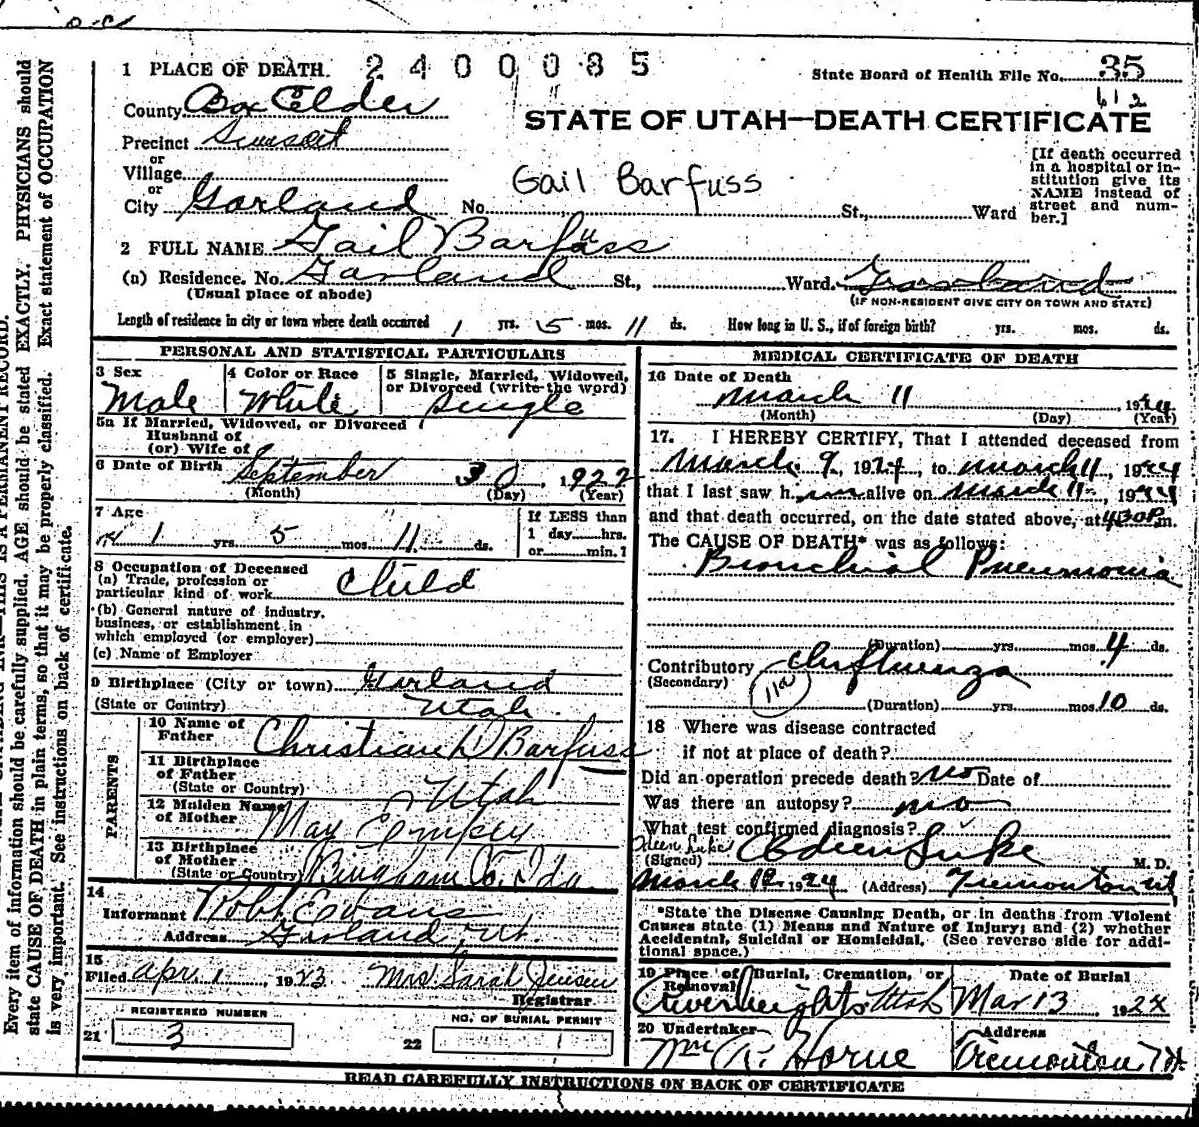 2400085
1 PLACE OF DEATH.
State Board of Health File No. 35
612
County Box Elder
STATE OF UTAH—DEATH CERTIFICATE
Precinct Sunset
or
Village
or
City Garland No. St., Ward
Gail Barfuss
[If death occurred
in a hospital or in-
stitution give its
NAME instead of
street and num-
ber.]
2 FULL NAME Gail Barfuss
(a) Residence. No. Garland St., Ward. Garland
(Usual place of abode)
(IF NON-RESIDENT GIVE CITY OR TOWN AND STATE)
Length of residence in city or town where death occurred 1 yrs. 5 mos. 11 ds. How long in U. S., if of foreign birth? yrs. mos. ds.
PERSONAL AND STATISTICAL PARTICULARS
3 Sex
Male
4 Color or Race
White
5 Single, Married, Widowed,
or Divorced (write the word)
Single
5a If Married, Widowed, or Divorced
Husband of
(or) Wife of
6 Date of Birth September 30, 1922
(Month) (Day) (Year)
7 Age
1 yrs. 5 mos. 11 ds.
If LESS than
1 day hrs.
or min.?
8 Occupation of Deceased
(a) Trade, profession or
particular kind of work Child
(b) General nature of industry,
business, or establishment in
which employed (or employer)
(c) Name of Employer
9 Birthplace (City or town) Garland
(State or Country) Utah
PARENTS
10 Name of
Father Christian D Barfuss
11 Birthplace
of Father
(State or Country) Utah
12 Maiden Name
of Mother May Empey
13 Birthplace
of Mother
(State or Country) Bingham Co. Ida.
14
Informant Robt Evans
Address Garland, Ut.
15
Filed Apr 1, 1923 Mrs Sarah Jensen
Registrar
21
REGISTERED NUMBER
3
22
NO. OF BURIAL PERMIT
1
MEDICAL CERTIFICATE OF DEATH
16 Date of Death
March 11, 1924
(Month) (Day) (Year)
17. I HEREBY CERTIFY, That I attended deceased from
March 9, 1924, to March 11, 1924
that I last saw h im alive on March 11, 1924
and that death occurred, on the date stated above, at 4:30 P.m.
The CAUSE OF DEATH* was as follows:
Bronchial Pneumonia
(Duration) yrs. mos. 4 ds.
Contributory Influenza
(Secondary)
11a
(Duration) yrs. mos. 10 ds.
18 Where was disease contracted
if not at place of death?
Did an operation precede death? no Date of
Was there an autopsy? no
What test confirmed diagnosis?
Odeen Luke
(Signed) Odeen Luke M. D.
March 12, 1924 (Address) Tremonton Ut
*State the Disease Causing Death, or in deaths from Violent
Causes state (1) Means and Nature of Injury; and (2) whether
Accidental, Suicidal or Homicidal. (See reverse side for addi-
tional space.)
19 Place of Burial, Cremation, or
Removal
Riverheights Utah
Date of Burial
Mar 13 1924
20 Undertaker
Wm R. Horne
Address
Tremonton Ut.
READ CAREFULLY INSTRUCTIONS ON BACK OF CERTIFICATE
Every item of information should be carefully supplied. AGE should be stated EXACTLY. PHYSICIANS should
state CAUSE OF DEATH in plain terms, so that it may be properly classified. Exact statement of OCCUPATION
is very important. See instructions on back of certificate.
THIS IS A PERMANENT RECORD.